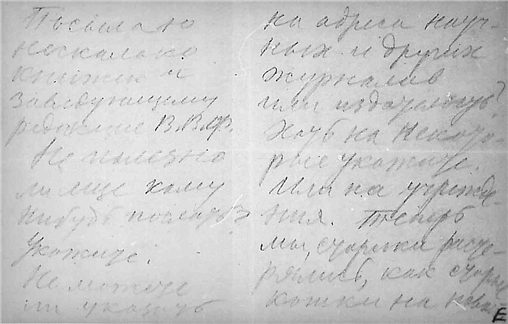 Посылаю
несколько
книжек и
Заведующему
редакцией В.В.И.Ф.
Не полезно
ли еще кому
нибудь послать?
Укажите.
Не можете
ли указать
на адреса науч-
ных и других
журналов
или издательств?
Хоть на некото-
рые укажите.
Или на учрежде-
ния. Теперь
мы, старики расте-
рялись, как старые
кошки на новой